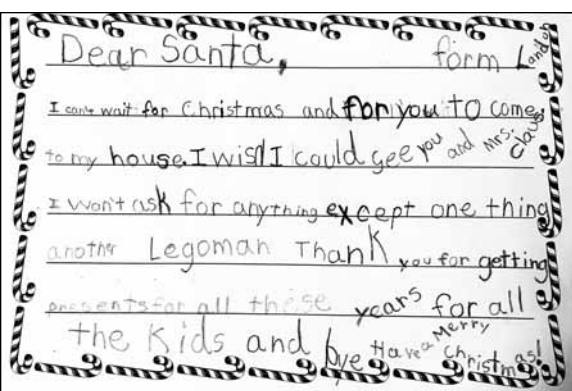 Dear Santa, form Landon
I can't wait for Christmas and for you to come
to my house. I wish I could see you and Mrs. Claus.
I won't ask for anything except one thing
another Legoman Thank you for getting
presents for all these years for all
the kids and bye Have a Merry Christmas!